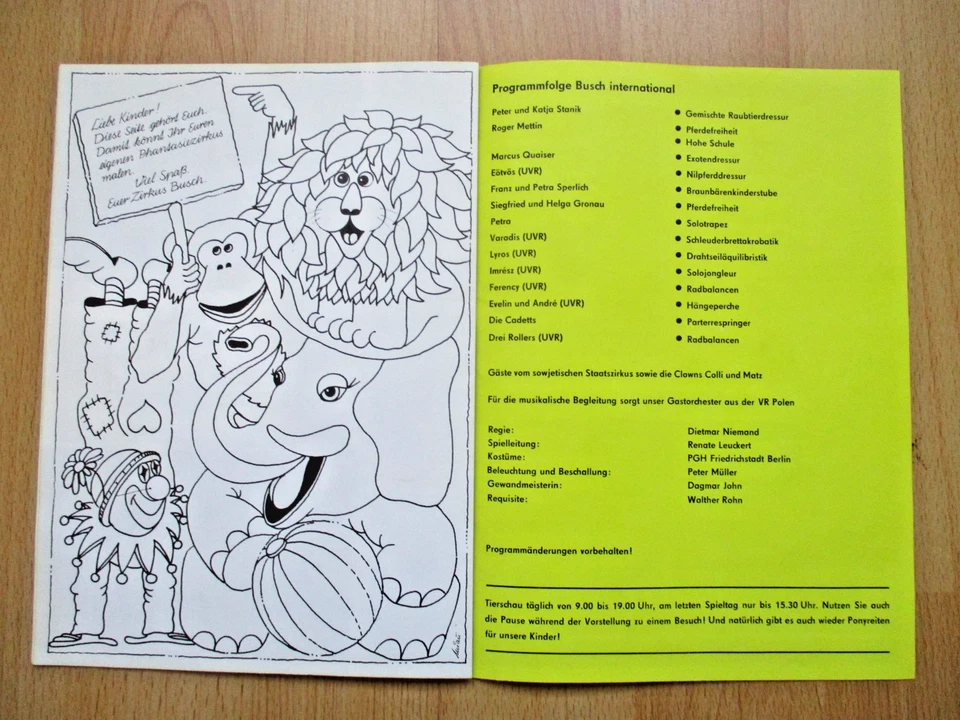 Liebe Kinder!
Diese Seite gehört Euch.
Damit könnt Ihr Euren
eigenen Phantasiezirkus
malen.
Viel Spaß.
Euer Zirkus Busch.
Programmfolge Busch international
Peter und Katja Stanik ● Gemischte Raubtierdressur
Roger Mettin ● Pferdefreiheit
● Hohe Schule
Marcus Quaiser ● Exotendressur
Eötvös (UVR) ● Nilpferddressur
Franz und Petra Sperlich ● Braunbärenkinderstube
Siegfried und Helga Gronau ● Pferdefreiheit
Petra ● Solotrapez
Varadis (UVR) ● Schleuderbrettakrobatik
Lyros (UVR) ● Drahtseiläquilibristik
Imrész (UVR) ● Solojongleur
Ferency (UVR) ● Radbalancen
Evelin und André (UVR) ● Hängeperche
Die Cadetts ● Parterrespringer
Drei Rollers (UVR) ● Radbalancen
Gäste vom sowjetischen Staatszirkus sowie die Clowns Colli und Matz
Für die musikalische Begleitung sorgt unser Gastorchester aus der VR Polen
Regie: Dietmar Niemand
Spielleitung: Renate Leuckert
Kostüme: PGH Friedrichstadt Berlin
Beleuchtung und Beschallung: Peter Müller
Gewandmeisterin: Dagmar John
Requisite: Walther Rohn
Programmänderungen vorbehalten!
Tierschau täglich von 9.00 bis 19.00 Uhr, am letzten Spieltag nur bis 15.30 Uhr. Nutzen Sie auch
die Pause während der Vorstellung zu einem Besuch! Und natürlich gibt es auch wieder Ponyreiten
für unsere Kinder!